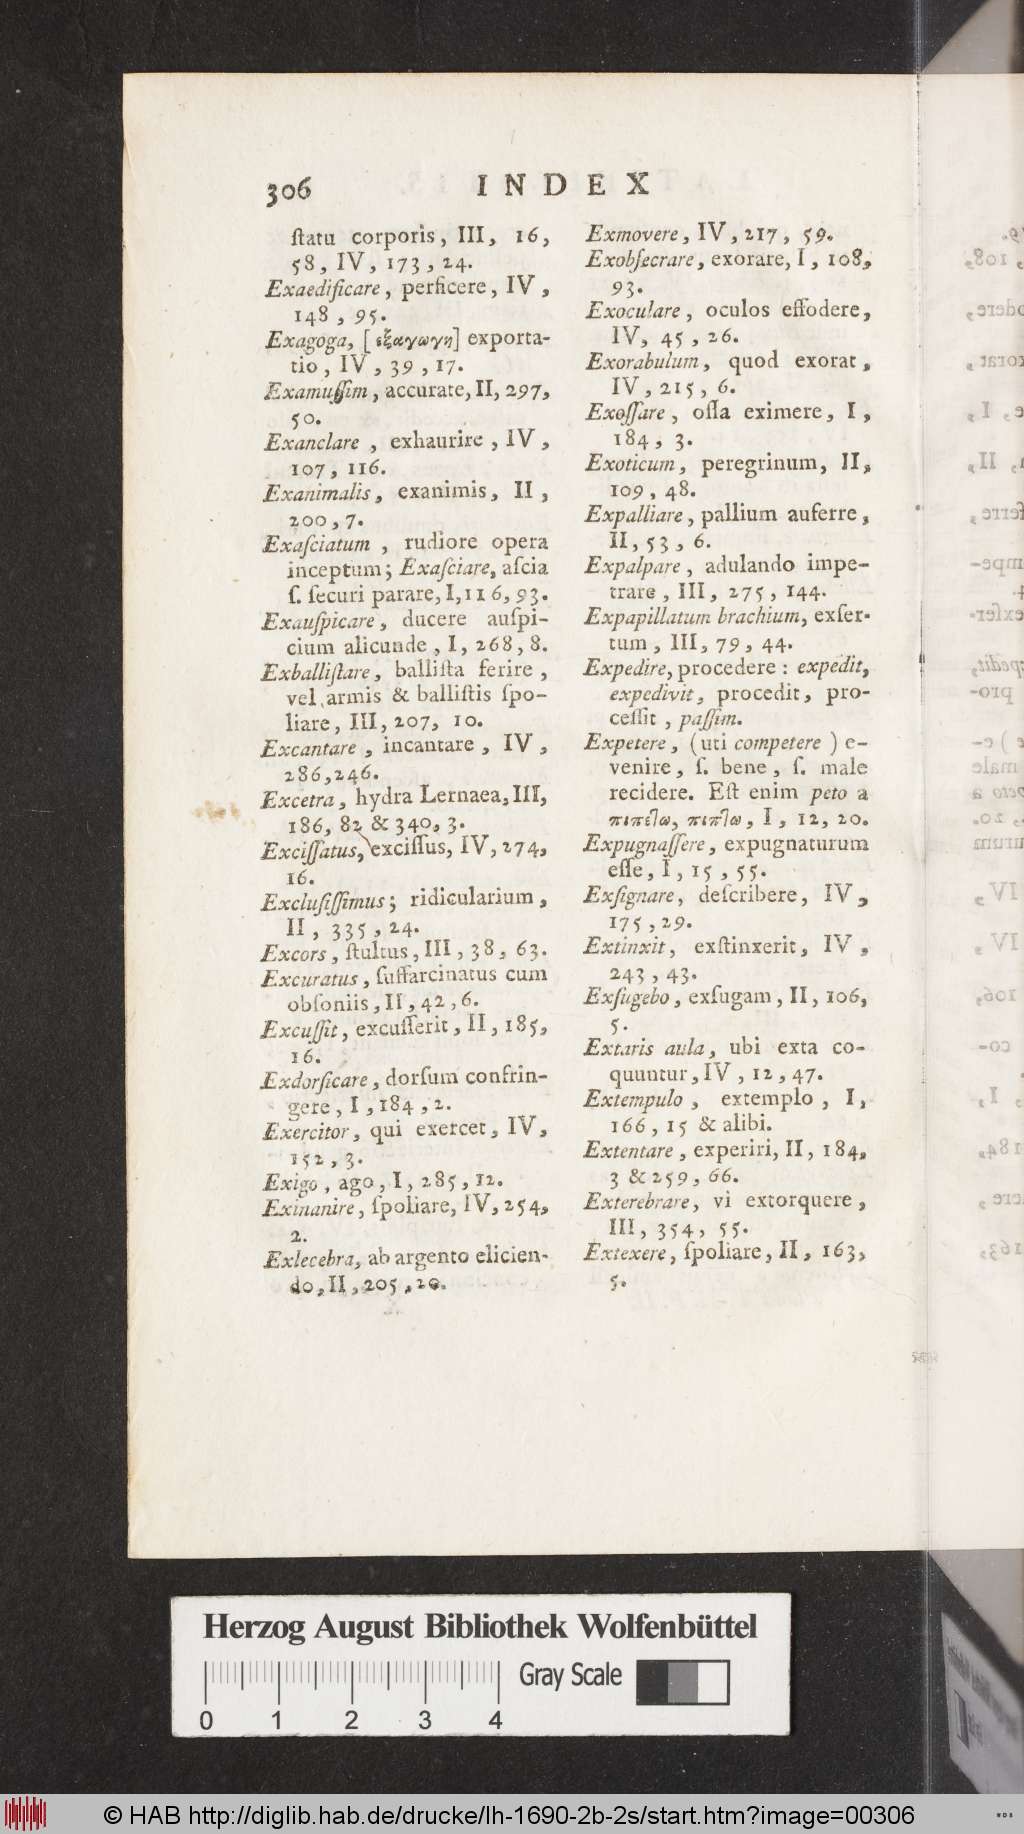 306
INDEX
ſtatu corporis, III, 16,
58, IV, 173, 24.
Exaedificare, perficere, IV,
148, 95.
Exagoga, [εξαγωγη] exporta-
tio, IV, 39, 17.
Examuſſim, accurate, II, 297,
50.
Exanclare, exhaurire, IV,
107, 116.
Exanimalis, exanimis, II,
200, 7.
Exaſciatum, rudiore opera
inceptum; Exaſciare, aſcia
ſ. ſecuri parare, I, 116, 93.
Exauſpicare, ducere auſpi-
cium alicunde, I, 268, 8.
Exballiſtare, balliſta ferire,
vel armis & balliſtis ſpo-
liare, III, 207, 10.
Excantare, incantare, IV,
286, 246.
Excetra, hydra Lernaea, III,
186, 82 & 340, 3.
Exciſſatus, exciſſus, IV, 274,
16.
Excluſiſſimus; ridicularium,
II, 335, 24.
Excors, ſtultus, III, 38, 63.
Excuratus, ſuffarcinatus cum
obſoniis, II, 42, 6.
Excuſſit, excuſſerit, II, 185,
16.
Exdorſicare, dorſum confrin-
gere, I, 184, 2.
Exercitor, qui exercet, IV,
152, 3.
Exigo, ago, I, 285, 12.
Exinanire, ſpoliare, IV, 254,
2.
Exlecebra, ab argento elicien-
do, II, 205, 20.
Exmovere, IV, 217, 59.
Exobſecrare, exorare, I, 108,
93.
Exoculare, oculos effodere,
IV, 45, 26.
Exorabulum, quod exorat,
IV, 215, 6.
Exoſſare, oſſa eximere, I,
184, 3.
Exoticum, peregrinum, II,
109, 48.
Expalliare, pallium auferre,
II, 53, 6.
Expalpare, adulando impe-
trare, III, 275, 144.
Expapillatum brachium, exſer-
tum, III, 79, 44.
Expedire, procedere: expedit,
expedivit, procedit, pro-
ceſſit, paſſim.
Expetere, (uti competere) e-
venire, ſ. bene, ſ. male
recidere. Eſt enim peto a
πιπέτω, πιπτω, I, 12, 20.
Expugnaſſere, expugnaturum
eſſe, I, 15, 55.
Exſignare, deſcribere, IV,
175, 29.
Extinxit, exſtinxerit, IV,
243, 43.
Exſugebo, exſugam, II, 106,
5.
Extaris aula, ubi exta co-
quuntur, IV, 12, 47.
Extempulo, extemplo, I,
166, 15 & alibi.
Extentare, experiri, II, 184,
3 & 259, 66.
Exterebrare, vi extorquere,
III, 354, 55.
Extexere, ſpoliare, II, 163,
5.
Herzog August Bibliothek Wolfenbüttel
Gray Scale
0 1 2 3 4
© HAB http://diglib.hab.de/drucke/lh-1690-2b-2s/start.htm?image=00306
WDB